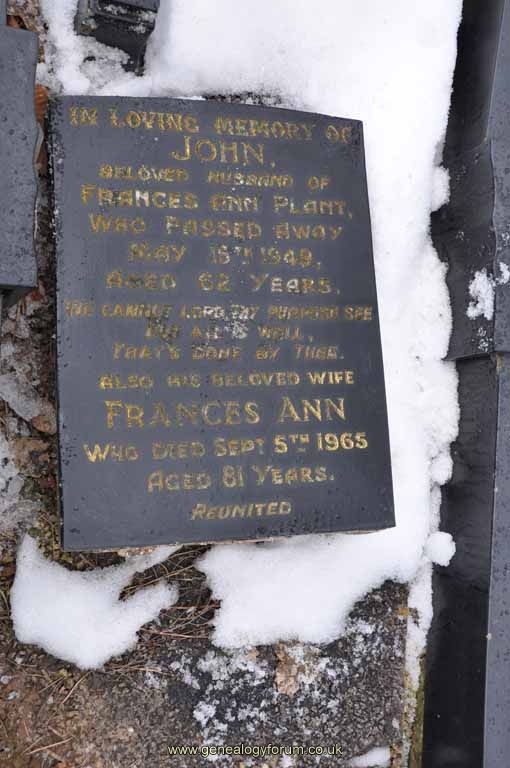 IN LOVING MEMORY OF
JOHN,
BELOVED HUSBAND OF
FRANCES ANN PLANT,
WHO PASSED AWAY
MAY 1949,
AGED 62 YEARS.
WE CANNOT LORD, THY PURPOSE SEE
BUT ALL IS WELL,
THAT'S DONE BY THEE.
ALSO HIS BELOVED WIFE
FRANCES ANN
WHO DIED SEPT 5TH 1965
AGED 81 YEARS.
REUNITED
www.genealogyforum.co.uk